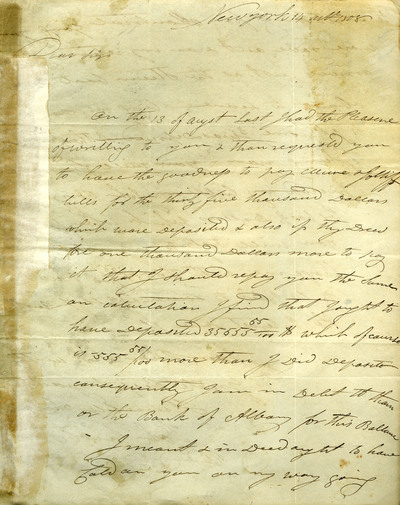 New york 14 1808
Dear Sir
On the 13 of augst Last I had the Pleasure
of writting to you & than requested you
to have the goodness to pay
bills for the thirty five thousand Dollars
which were Deposited & also if they Drew
for one thousand Dollars more to pay
it that I should repay you the Same
on calculation I find that I ought to
have Deposited 35555 55/100 $ which of course
is 555 55/100 more than I Did Deposite
consequently I am in Debt to them
or the Bank of Albany for this Ballance
I meant & in Deed ought to have
Called on you on my way going